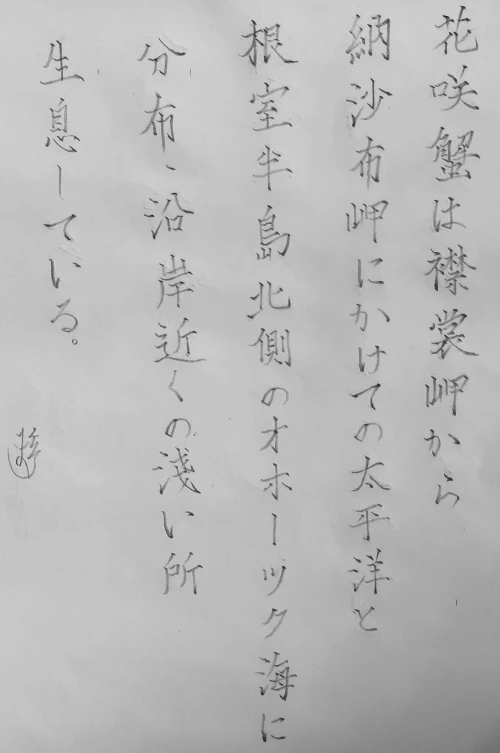 花咲蟹は襟裳岬から
納沙布岬にかけての太平洋と
根室半島北側のオホーツク海に
分布、沿岸近くの淺い所
生息している。
遊